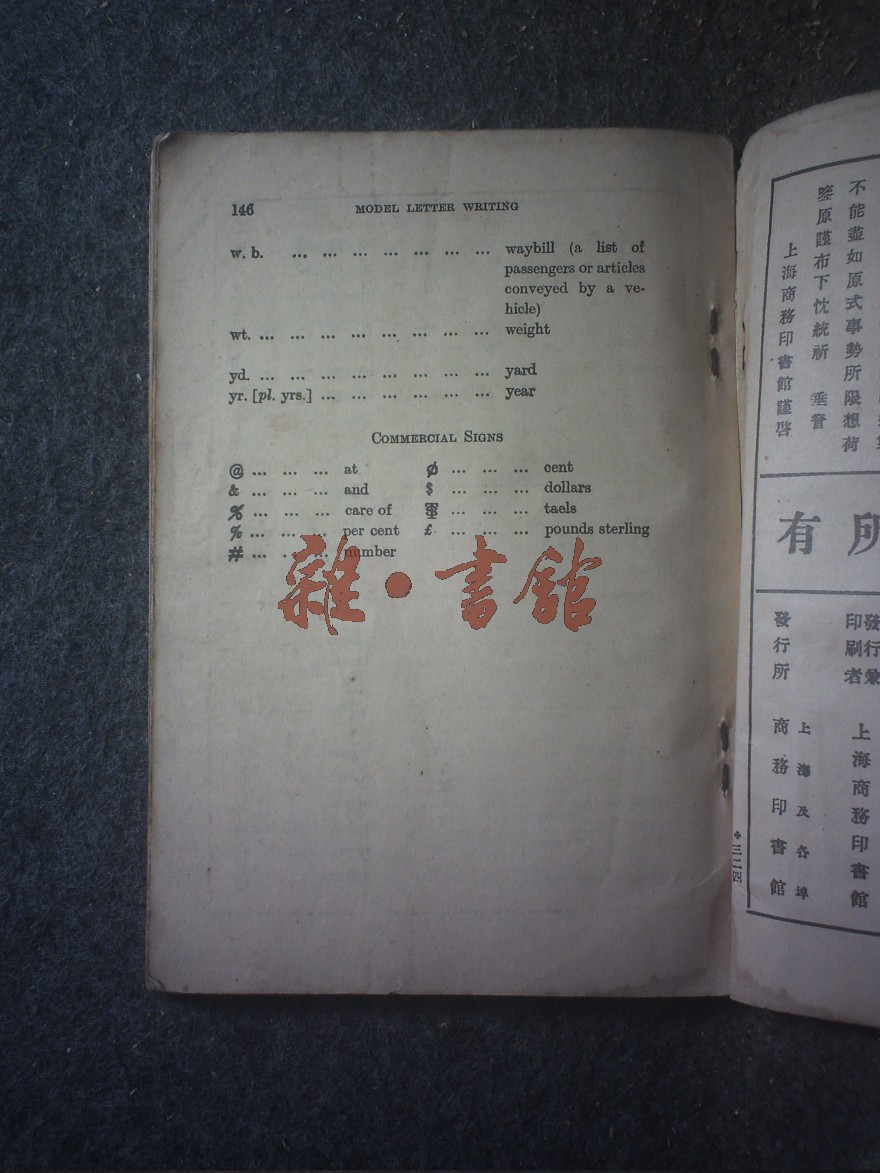 146 MODEL LETTER WRITING
w. b. ... ... ... ... ... ... ... waybill (a list of
passengers or articles
conveyed by a ve-
hicle)
wt. ... ... ... ... ... ... ... ... weight
yd. ... ... ... ... ... ... ... ... yard
yr. [pl. yrs.] ... ... ... ... ... ... year
COMMERCIAL SIGNS
@ ... ... ... at ¢ ... ... ... cent
& ... ... ... and $ ... ... ... dollars
℅ ... ... ... care of ... ... ... taels
% ... ... ... per cent £ ... ... ... pounds sterling
# ... ... ... number
雜·書館
不能盡如原式事勢所限想荷
鑒原謹布下忱統祈 垂詧
上海商務印書館謹啓
所
有
印刷者 上海商務印書館
發行所 上海及各埠 商務印書館
三二四